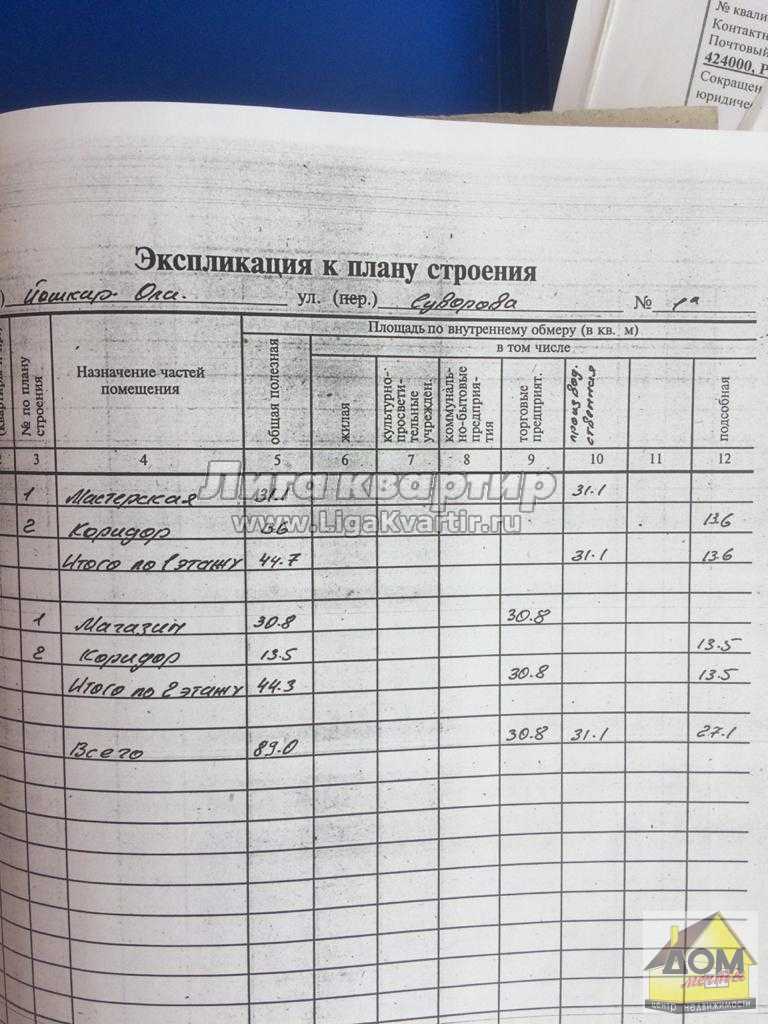 № квали
Контактн
Почтовый
424000, Р
Сокращен
юридичес
Экспликация к плану строения
) Йошкар-Ола. ул. (пер.) Суворова № 1а
№ по плану строения
Назначение частей помещения
Площадь по внутреннему обмеру (в кв. м)
общая полезная
в том числе
жилая
культурно-просветительные учрежден.
коммунально-бытовые предприятия
торговые предприят.
производственная
подсобная
3 4 5 6 7 8 9 10 11 12
1 Мастерская 31.1 31.1
2 Коридор 13.6 13.6
Итого по 1 этажу 44.7 31.1 13.6
1 Магазин 30.8 30.8
2 Коридор 13.5 13.5
Итого по 2 этажу 44.3 30.8 13.5
Всего 89.0 30.8 31.1 27.1
Лига квартир
www.LigaKvartir.ru
ДОМ
мечты
центр недвижимости